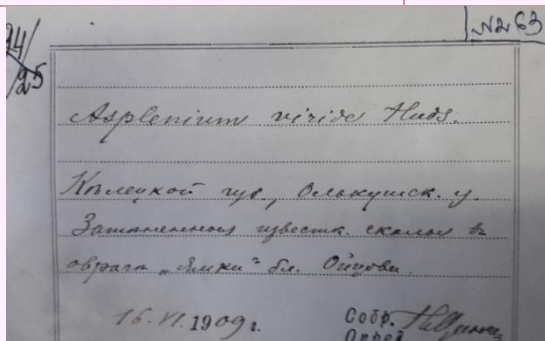 94/25
№ 63
Asplenium viride Huds.
Кѣлецкой губ., Олькушск. у.
Затѣненныя известк. скалы въ
оврагѣ „Ямки“ бл. Ойцова.
16.VI.1909 г.
Собр.
Опред.